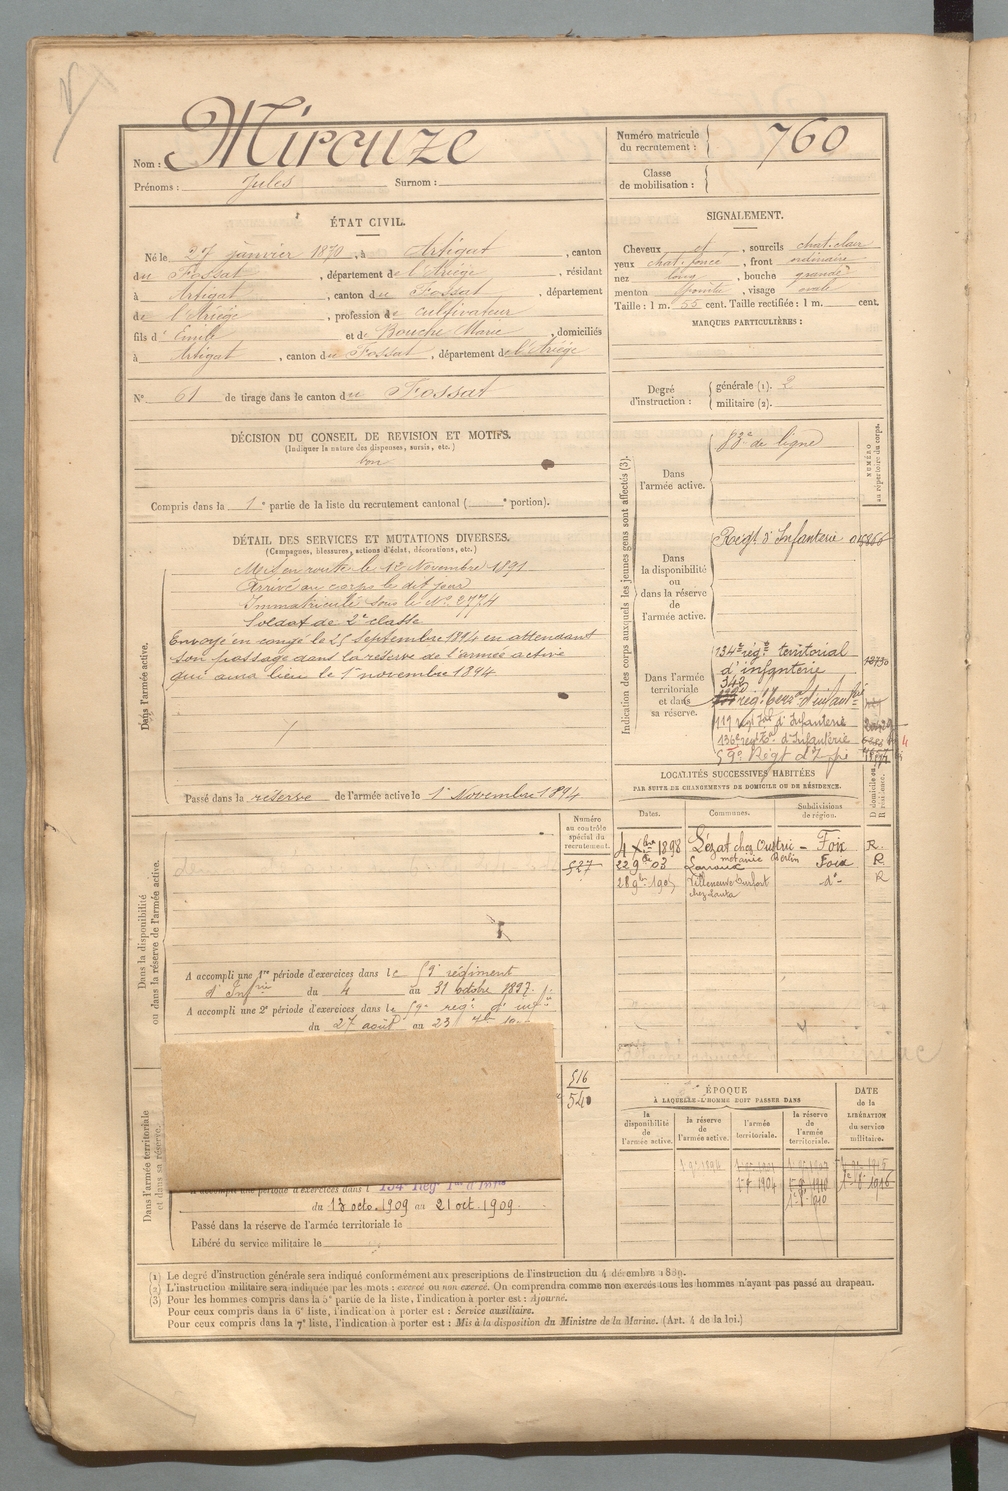 Nom : Mirouze
Prénoms : Jules Surnom :
Numéro matricule
du recrutement : 760
Classe
de mobilisation :
ÉTAT CIVIL.
Né le 27 janvier 1870, à Artigat, canton
du Fossat, département de l'Ariège, résidant
à Artigat, canton du Fossat, département
de l'Ariège, profession de cultivateur
fils d' Emile et de Bouche Marie, domiciliés
à Artigat, canton du Fossat, département de l'Ariège
N° 61 de tirage dans le canton du Fossat
SIGNALEMENT.
Cheveux d, sourcils chat. clair
yeux chat. foncé, front ordinaire
nez long, bouche grande
menton pointu, visage ovale
Taille : 1 m. 55 cent. Taille rectifiée : 1 m. cent.
MARQUES PARTICULIÈRES :
Degré
d'instruction :
générale (1). 2
militaire (2).
DÉCISION DU CONSEIL DE REVISION ET MOTIFS.
(Indiquer la nature des dispenses, sursis, etc.)
bon
Compris dans la 1e partie de la liste du recrutement cantonal ( e portion).
DÉTAIL DES SERVICES ET MUTATIONS DIVERSES.
(Campagnes, blessures, actions d'éclat, décorations, etc.)
Dans l'armée active.
Mis en route le 12 Novembre 1891
Arrivé au corps le dit jour
Immatriculé sous le N° 2774
Soldat de 2e classe
Envoyé en congé le 25 Septembre 1894 en attendant
son passage dans la réserve de l'armée active
qui aura lieu le 1er novembre 1894
Passé dans la réserve de l'armée active le 1er Novembre 1894
Indication des corps auxquels les jeunes gens sont affectés (3).
NUMÉRO
au répertoire du corps.
Dans
l'armée active.
83e de ligne
Dans
la disponibilité
ou
dans la réserve
de
l'armée active.
Régt d'Infanterie
Dans l'armée
territoriale
et dans
sa réserve.
134e régt territorial
d'infanterie
342
régt terr. d'infantie
117 régt d'Infanterie
136e régt Ter d'Infanterie
59e Régt d'Infie
LOCALITÉS SUCCESSIVES HABITÉES
PAR SUITE DE CHANGEMENTS DE DOMICILE OU DE RÉSIDENCE.
Dates. Communes. Subdivisions
de région. D domicile ou
R résidence.
4 Xbre 1898 Lézat chez Oustric - Foix R.
22 9bre 03 métairie Berlin Foix R
28 9bre 1905 Villeneuve Durfort do R
Numéro
au contrôle
spécial du
recrutement.
527
Dans la disponibilité
ou dans la réserve de l'armée active.
A accompli une 1re période d'exercices dans le 59e régiment
d'Infrie du 4 au 31 octobre 1897.
A accompli une 2e période d'exercices dans le 59e régt d'infie
du 27 août au 23
Dans l'armée territoriale
et dans sa réserve.
516
540
A accompli une période d'exercices dans l 134e Régt Ter d'Infie
du 13 octo. 1909 au 21 oct. 1909.
Passé dans la réserve de l'armée territoriale le
Libéré du service militaire le
ÉPOQUE
À LAQUELLE L'HOMME DOIT PASSER DANS
la
disponibilité
de
l'armée active.
la réserve
de
l'armée active.
l'armée
territoriale.
la réserve
de
l'armée
territoriale.
DATE
de la
LIBÉRATION
du service
militaire.
(1) Le degré d'instruction générale sera indiqué conformément aux prescriptions de l'instruction du 4 décembre 1889.
(2) L'instruction militaire sera indiquée par les mots : exercé ou non exercé. On comprendra comme non exercés tous les hommes n'ayant pas passé au drapeau.
(3) Pour les hommes compris dans la 5e partie de la liste, l'indication à porter est : Ajourné.
Pour ceux compris dans la 6e liste, l'indication à porter est : Service auxiliaire.
Pour ceux compris dans la 7e liste, l'indication à porter est : Mis à la disposition du Ministre de la Marine. (Art. 4 de la loi.)